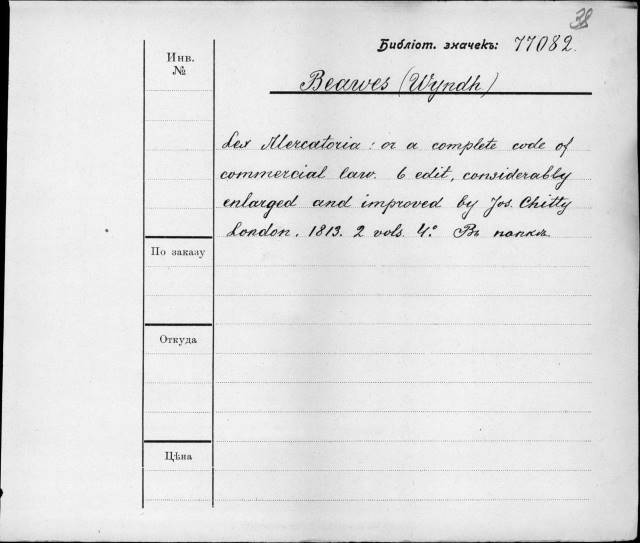 38
Библіот. значекъ: 77082.
Инв.
№
Beawes (Wyndh.)
Lex Mercatoria: or a complete code of
commercial law. 6 edit, considerably
enlarged and improved by Jos. Chitty
London. 1813. 2 vols. 4.° Въ папкѣ.
По заказу
Откуда
Цѣна